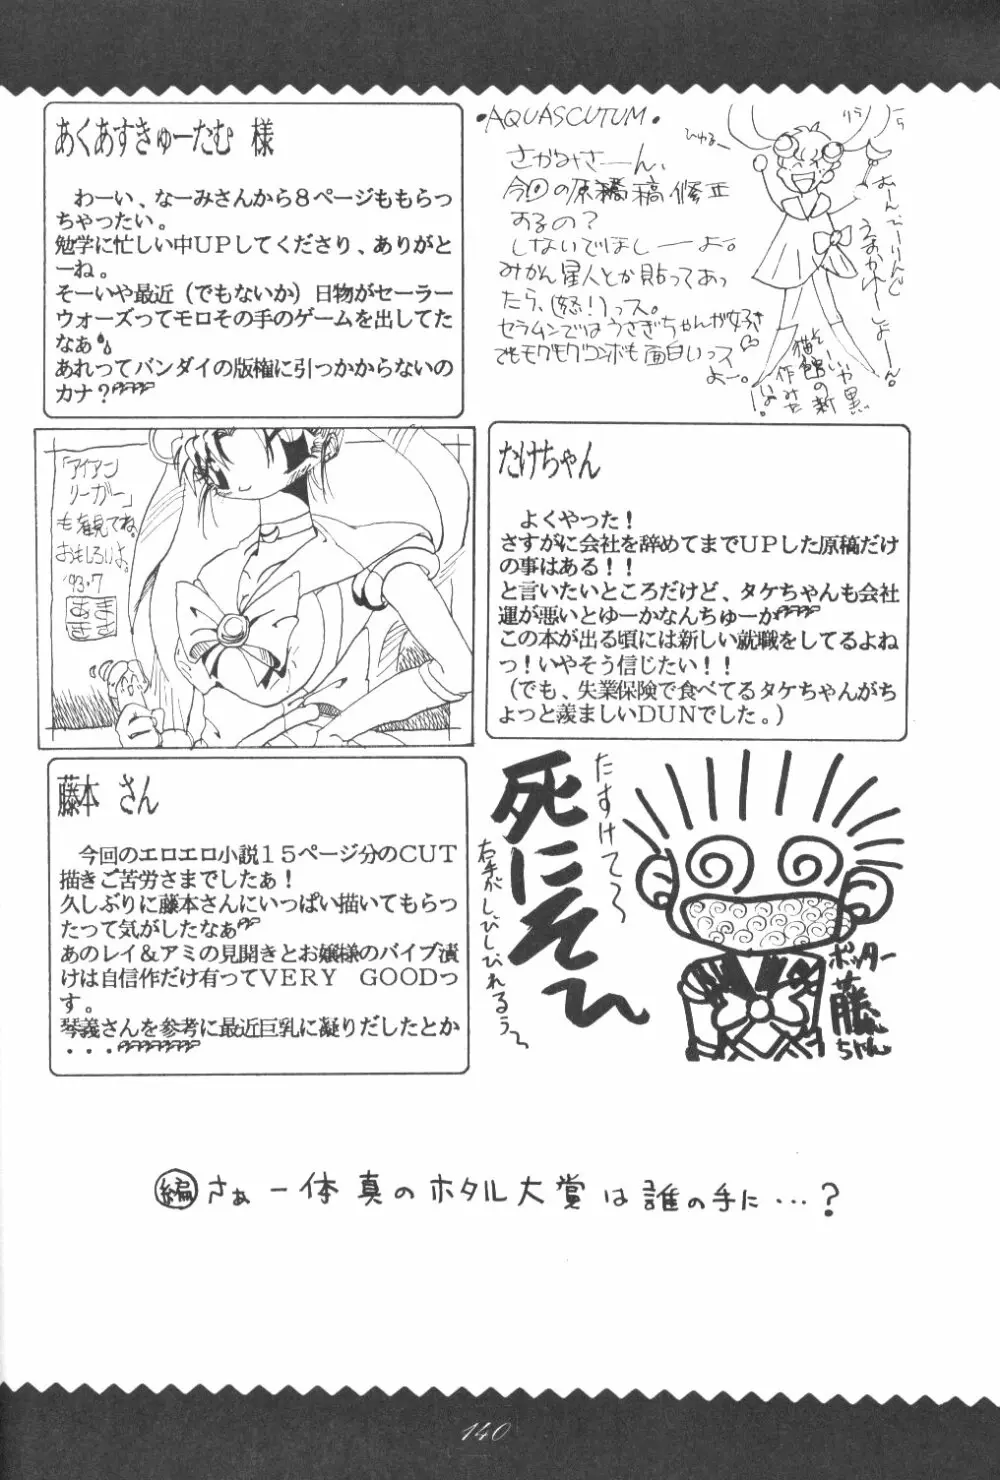 あくあすきゅーたむ 様
わーい、なーみさんから８ページももらっ
ちゃったい。
勉学に忙しい中ＵＰしてくださり、ありがと
ーね。
そーいや最近（でもないか）日物がセーラー
ウォーズってモロその手のゲームを出してた
なぁ
あれってバンダイの版権に引っかからないの
カナ？
・AQUASCUTUM・
さかみさーん、
今回の原稿修正
するの？
しないでほしーよ。
みかん星人とか貼ってあっ
たら、(怒！)っス。
セラムンではうさぎちゃんが好き
でもモグモグコンボも面白いっス
よー。
ひゅるー
そーいや黒
猫館の新
作みた
い！
「アイアン
リーガー」
も観てね。
おもしろいよ。
'93・7
たけちゃん
よくやった！
さすがに会社を辞めてまでＵＰした原稿だけ
の事はある！！
と言いたいところだけど、タケちゃんも会社
運が悪いとゆーかなんちゅーか
この本が出る頃には新しい就職をしてるよね
っ！いやそう信じたい！！
（でも、失業保険で食べてるタケちゃんがち
ょっと羨ましいＤＵＮでした。）
藤本 さん
今回のエロエロ小説１５ページ分のＣＵＴ
描きご苦労さまでしたぁ！
久しぶりに藤本さんにいっぱい描いてもらっ
たって気がしたなぁ
あのレイ＆アミの見開きとお嬢様のバイブ漬
けは自信作だけ有ってＶＥＲＹ ＧＯＯＤっ
す。
琴義さんを参考に最近巨乳に凝りだしたとか
・・・
たすけて〜
死にそひ
右手がしびしびれるぅ〜
ポッター
藤
ちゃん
編 さぁ一体真のホタル大賞は誰の手に…？
140